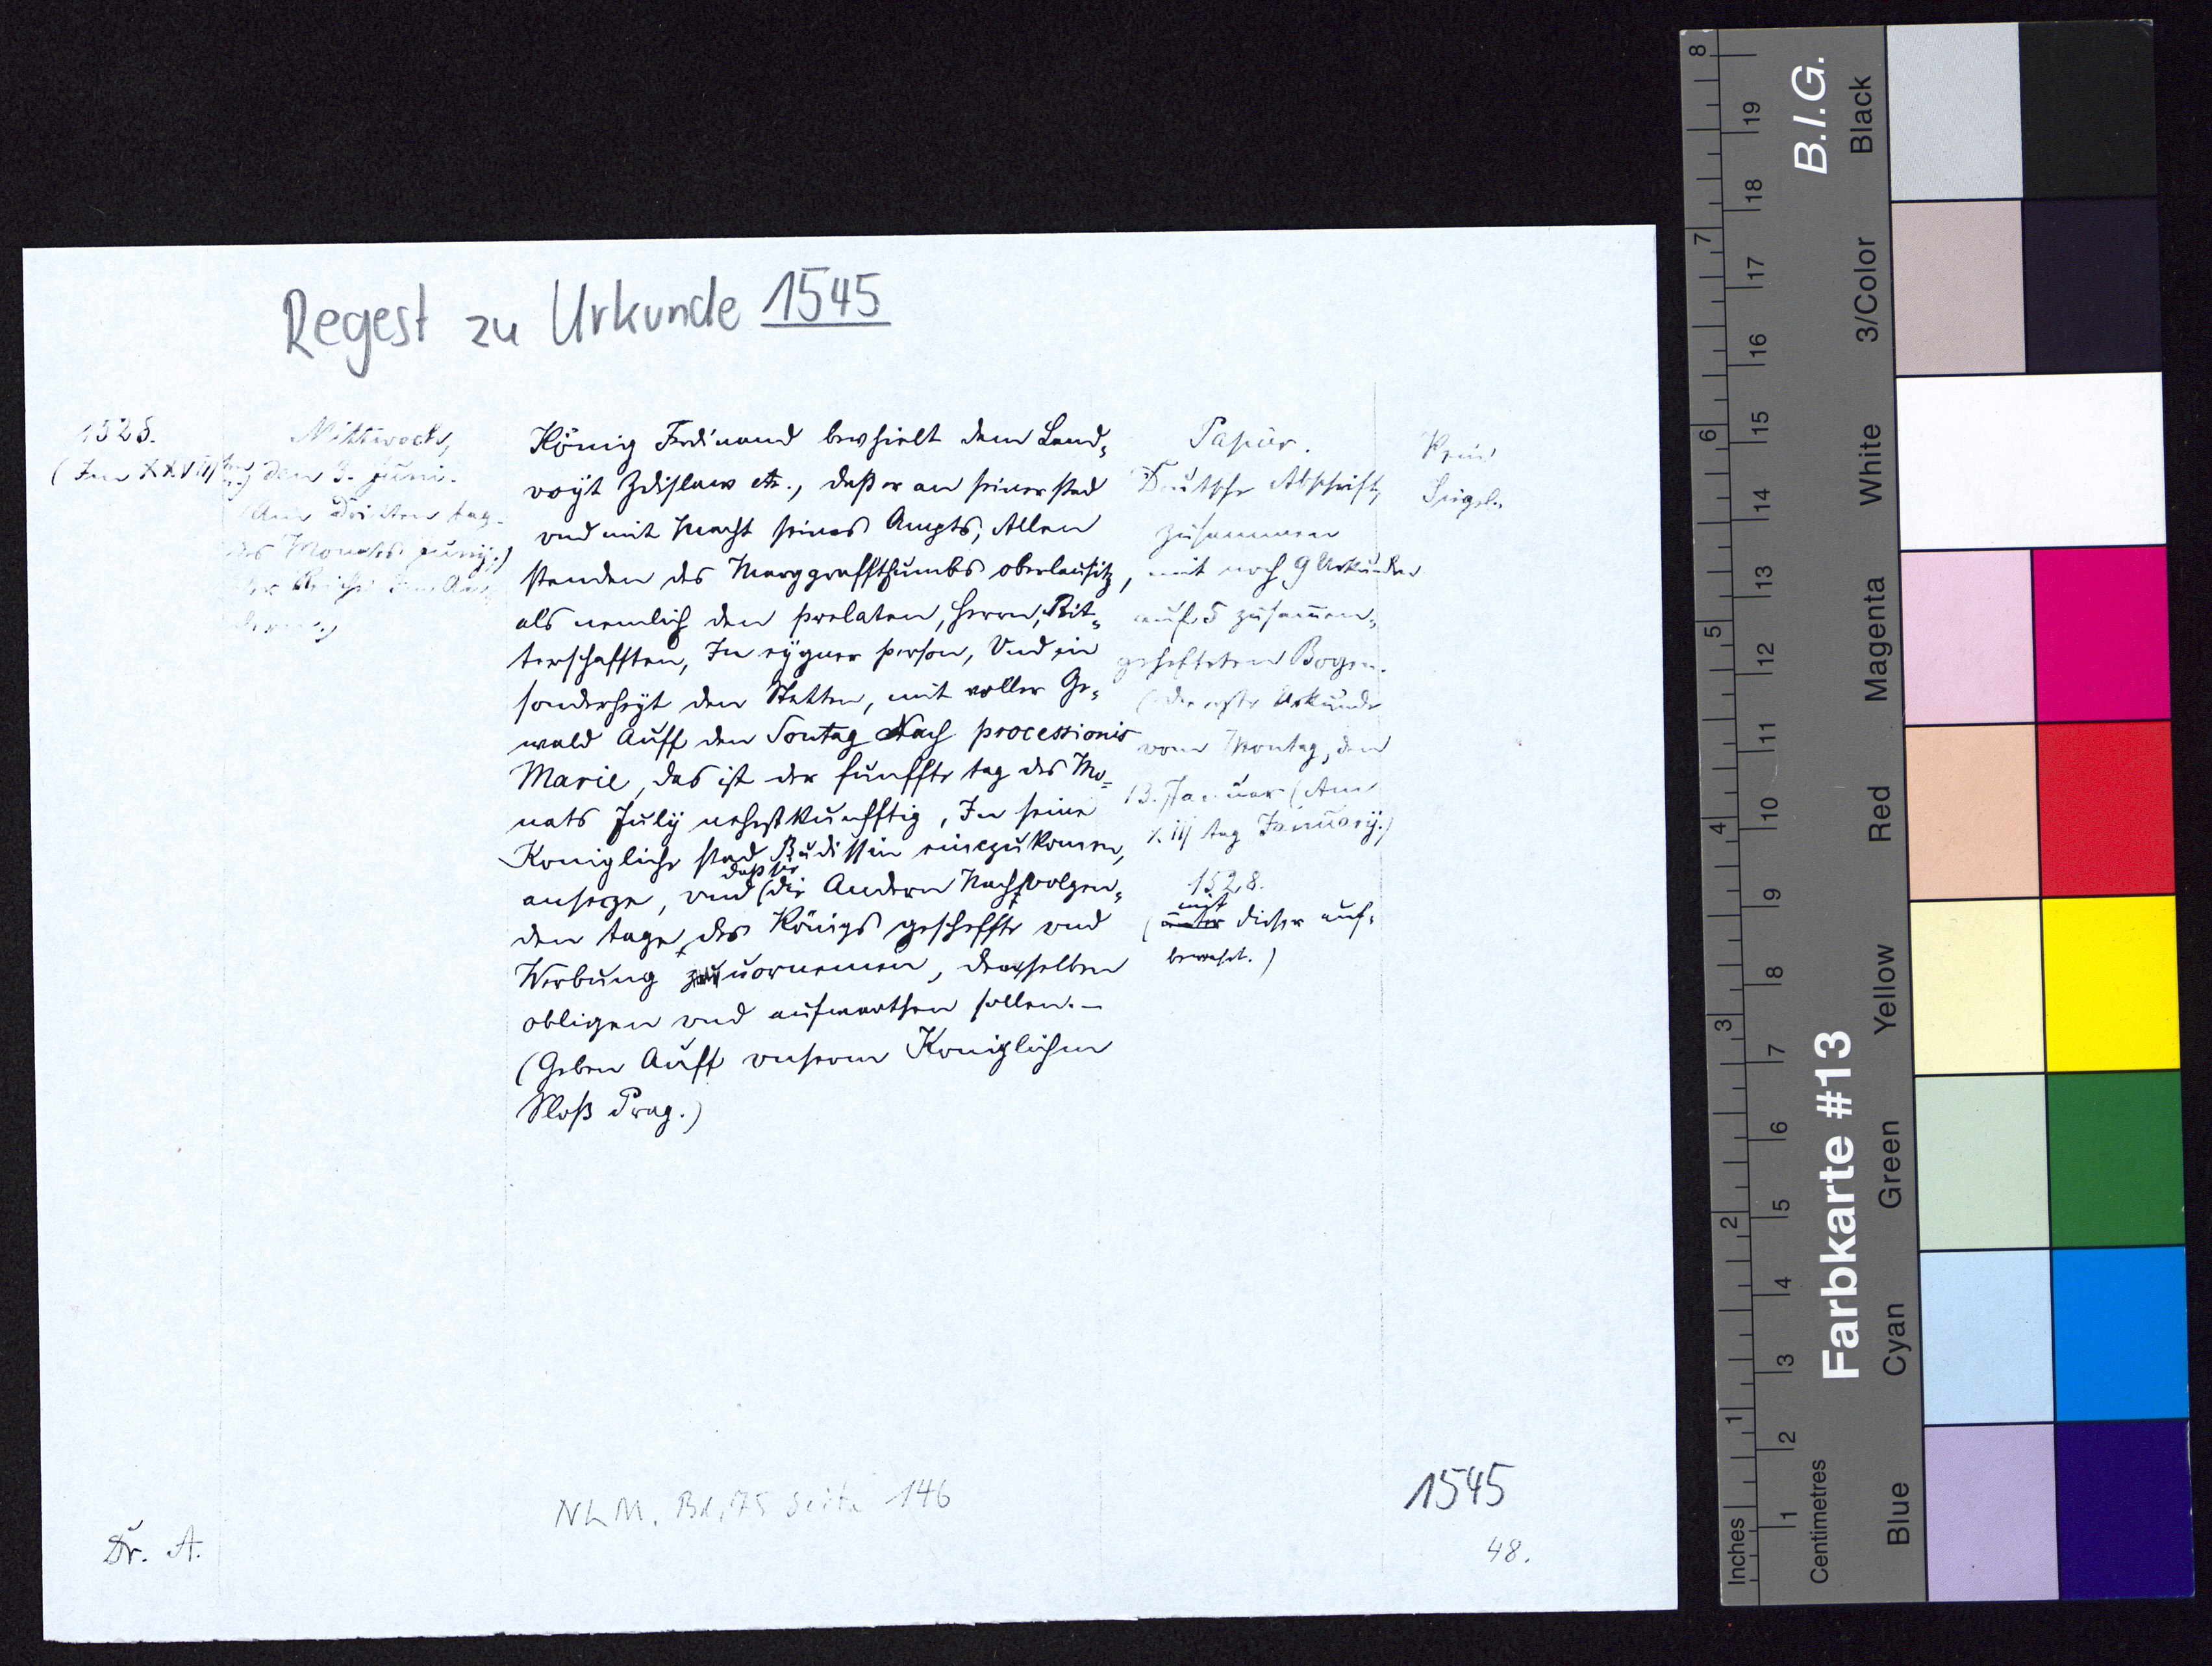 Regest zu Urkunde 1545
1528.
(Im XXVIII
Mittwoch,
den 3. Juni.
(Am Dritten tag
des Monats Junij.)
König Ferdinand bevhielt dem Land„
voijt Zdislaw etc., daß er an seiner stad
vnd mit Macht seines Ampts, Allen
stenden des Marggraffthumbs oberlausitz,
als nemlich den prelaten, Herrn, Rit„
terschafften, In eÿgner person, Vnd in
sonderheÿt den Stetten, mit voller Ge„
wald Auff den Sontag Nach processionis
Marie, das ist der funffte tag des Mo„
nats Julij nehstkunfftig, In seine
Konigliche stad Budissin einczukomen,
ansecze, vnd (daß sie) die Andern Nachvolgen„
den tage, des Königs gescheffte vnd
Werbung zuuornemen, denselben
obligen vnd aufwarthen sollen. —
(Geben Auff vnserm Koniglichen
Sloß Prag.)
Papier.
Deutsche Abschrift,
zusammen
mit noch 9 Urkunden
auf 5 zusam̄en„
gehefteten Bogen.
(die erste Urkunde
vom Montag, den
13. Januar (Am
XIII tag Januarij.)
1528.
mit
(unter dieser auf„
bewahrt.)
Kein
Siegel.
NLM. Bd. 75 Seite 146
1545
48.
Dr. A.
B.I.G.
Farbkarte #13
Inches
1
2
3
4
5
6
7
8
Centimetres
1
2
3
4
5
6
7
8
9
10
11
12
13
14
15
16
17
18
19
Blue
Cyan
Green
Yellow
Red
Magenta
White
3/Color
Black